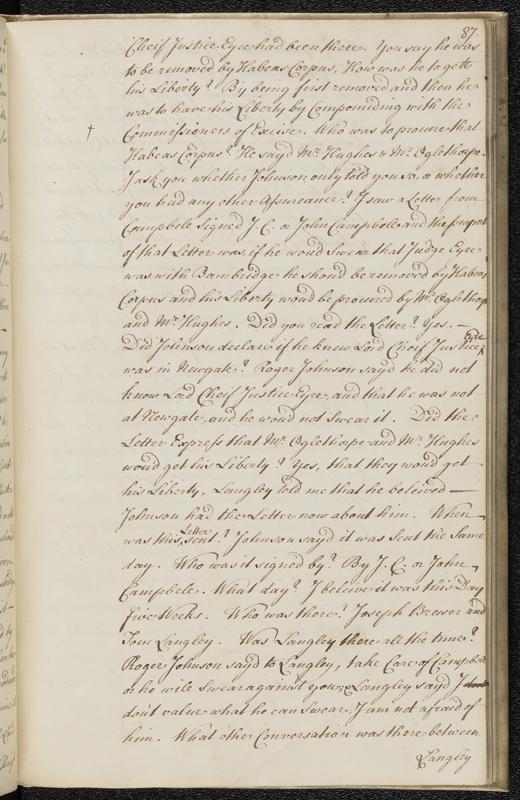 87.
Cheif Justice Eyre had been there. You say he was
to be removed by Habeas Corpus, How was he to gett
his Liberty? By being first removed and then he
was to have his Liberty by Compounding with the
Commissioners of Excise. Who was to procure that
Habeas Corpus? He sayd Mr. Hughes & Mr. Oglethorpe.
I ask you whether Johnson only told you so, or whether
you had any other Assureance? I saw a Letter from
Campbele signed J C. or John Campbele and the purport
of that Letter was if he woud Swear that Judge Eyre
was with Bambridge he shoud be removed by Habeas
Corpus and his Liberty woud be procured by Mr. Oglethorp
and Mr. Hughes. Did you read the Letter? Yes. —
Did Johnson declare if he knew Lord Cheif Justice Eyre
was in Newgate? Roger Johnson sayd he did not
know Lord Cheif Justice Eyre, and that he was not
at Newgate, and he woud not Swear it. Did the
Letter Express that Mr. Oglethorpe and Mr. Hughes
woud get his Liberty? Yes, that they woud get
his Liberty, Langley told me that he beleived —
Johnson had the Letter now about him. When
was this Letter sent? Johnson sayd it was sent the same
day. Who was it signed by? By J. C. or John
Campbele. What day? I beleive it was this Day
five Weeks. Who was there? Joseph Brewer and
Tom Langley. Was Langley there all the time?
Roger Johnson sayd to Langley, take Care of Campbele
or he wile Swear against you, Langley sayd I
dont value what he can Swear I am not afraid of
him. What other Conversation was there between
Langley